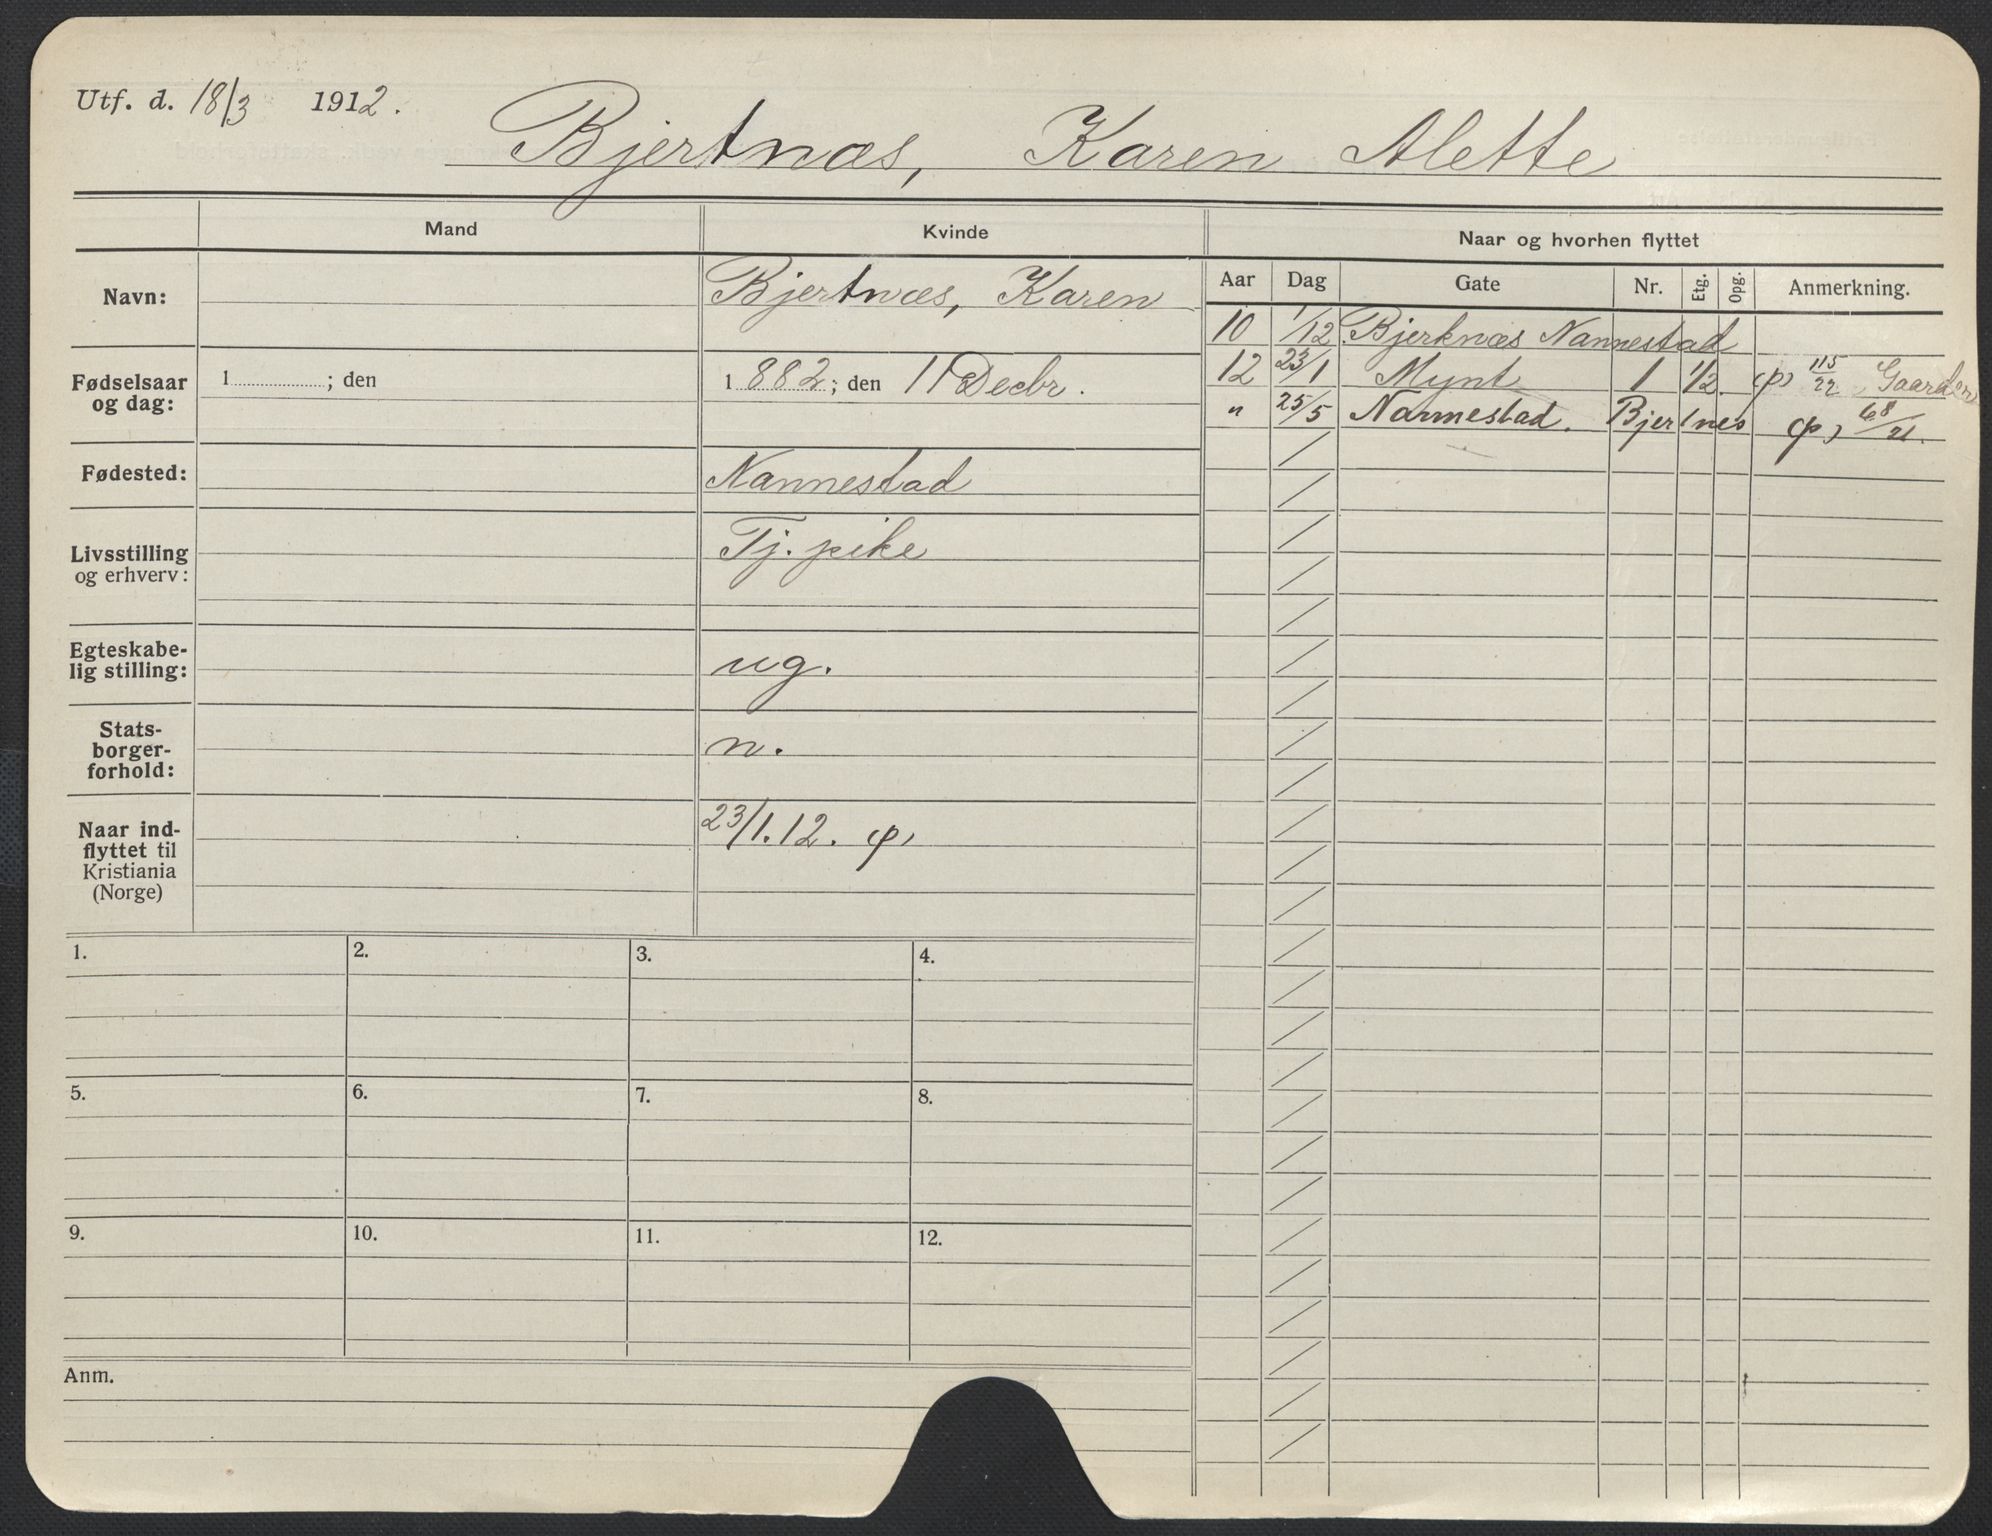 Utf. d. 18/3 1912.
Bjertnæs, Karen Alette
Mand
Kvinde
Naar og hvorhen flyttet
Navn:
Bjertnæs, Karen
Aar Dag Gate Nr. Etg. Opg. Anmerkning.
10 1/12 Bjerknæs Nannestad
12 23/1 Mynt 1 1/2. (p) 115/22 Gaarden
" 25/5 Nannestad. Bjertnes (p) 68/21.
Fødselsaar
og dag:
1 ; den
1882; den 11 Decbr.
Fødested:
Nannestad
Livsstilling
og erhverv:
Tj. pike
Egteskabe-
lig stilling:
ug.
Stats-
borger-
forhold:
n.
Naar ind-
flyttet til
Kristiania
(Norge)
23/1.12. (p)
1. 2. 3. 4.
5. 6. 7. 8.
9. 10. 11. 12.
Anm.